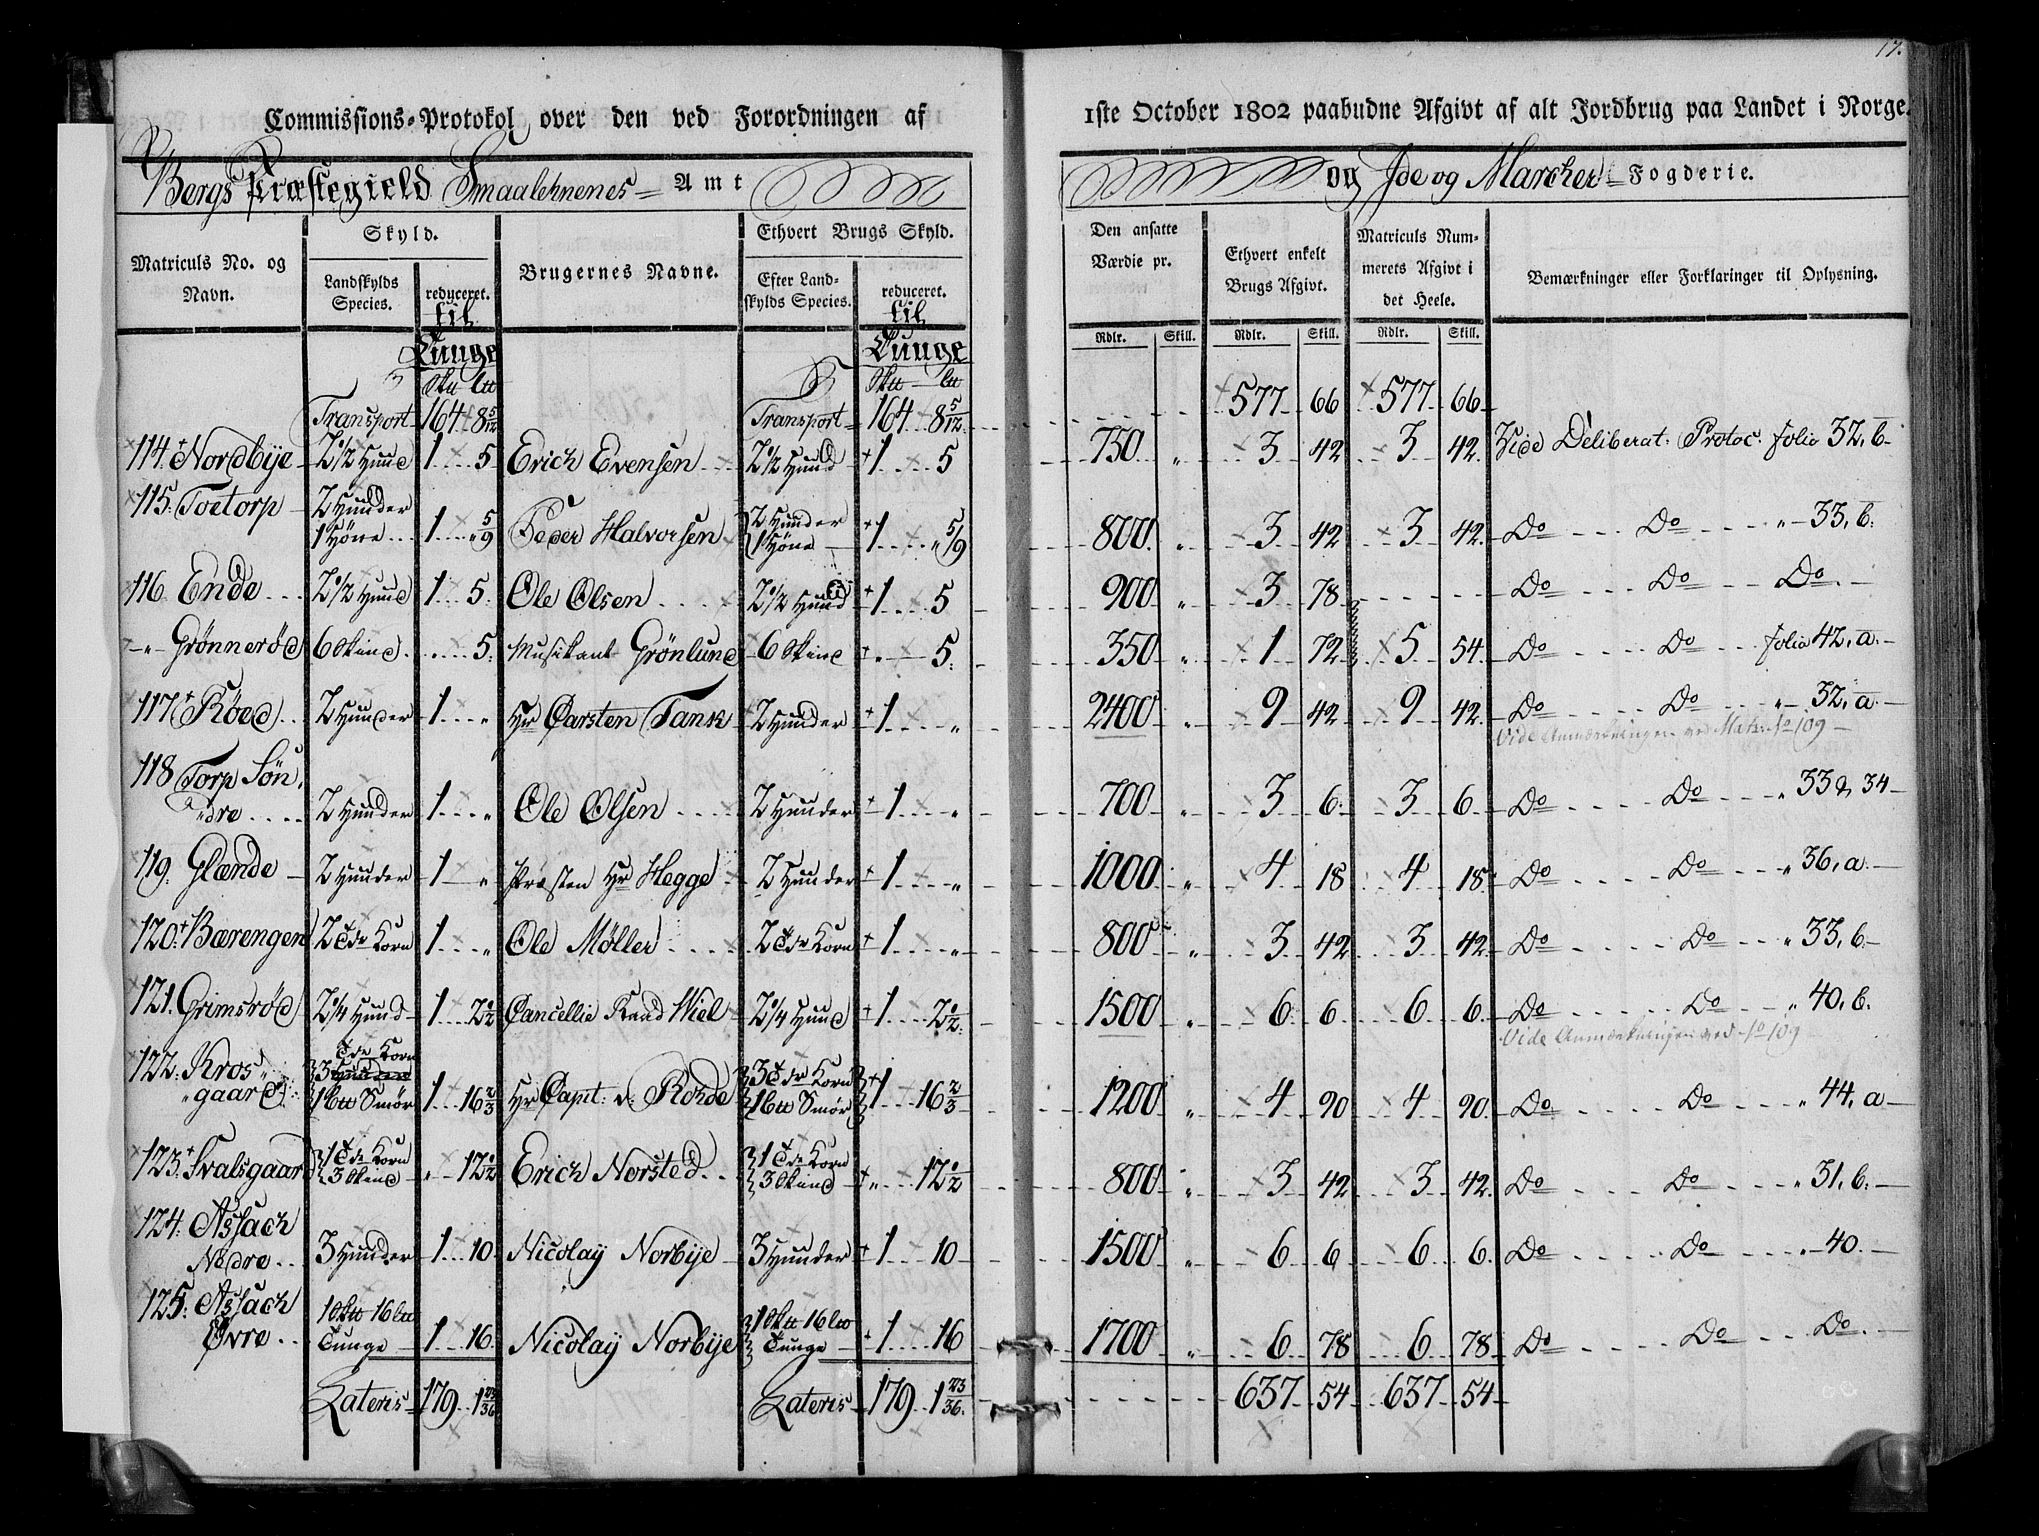 17.
Commissions-Protokol over den ved Forordningen af 1ste October 1802 paabudne Afgivt af alt Jordbrug paa Landet i Norge.
Bergs Præstegield Smaalehnenes Amt og Ide og Marcher Fogderie.
Matriculs No. og Navn. Skyld. Brugernes Navne. Ethvert Brugs Skyld. Den ansatte Værdie pr. Ethvert enkelt Brugs Afgivt. Matriculs Nummerets Afgivt i det Heele. Bemærkninger eller Forklaringer til Oplysning.
Landskylds Species. reduceret. til Tunge Efter Landskylds Species. reduceret. til Tunge
Rdlr. Skill. Rdlr. Skill. Rdlr. Skill.
Transport 164 8 5/12 Transport 164 8 5/12 577 66 577 66
114. Nordbÿe 2 1/2 Huud 1 5 Erich Evensen 2 1/2 Huud 1 5 750 " 3 42 3 42 Vide Deliberat: Protoc: folio 32, b
115. Toetorp 2 Huuder 1 Høne 1 " 5/9 Peder Halvorsen 2 Huuder 1 Høne 1 " 5/9 800 " 3 42 3 42 Do Do " 33, b.
116. Ende 2 1/2 Huud 1 5. Ole Olsen 2 1/2 Huud 1 5 900 " 3 78 Do Do Do.
" Grønnerød 6 Skind 5. Musikant Grönlund 6 Skind " 5. 350 " 1 72 5 54 Do Do folio 42, a.
117 Röed 2 Huuder 1 " Hr Carsten Tank 2 Huuder 1 " 2400 " 9 42 9 42 Do Do " 32, a.
Vide Anmærkningen ved Matr: No 109
118 Torp Søndre 2 Huuder 1 " Ole Olsen 2 Huuder 1 " 700 " 3 6. 3 6 Do Do " 33 & 34
119. Glænde 2 Huuder 1 " Præsten Hr Hegge 2 Huuder 1 " 1000 " 4 18 4 18 Do Do " 36, a.
120. Bærengen 2 Tdr Korn 1 " Ole Møller 2 Tdr Korn 1 " 800 " 3 42 3 42 Do Do " 33, b.
121. Grimsrød 2 1/4 Huud 1 2 1/2 Cancellie Raad Wiel 2 1/4 Huud 1 2 1/2 1500 " 6 6 6 6. Do Do " 40, b.
Vide Anmærkningen ved No 109
122. Krosgaard 3 Tdr Korn Huuder 1 btt Smør 1 16 2/3 Hr Capt: v: Rohde 3 Tdr Korn 1 btt Smør 1 16 2/3 1200 " 4 90 4 90. Do Do " 44, a
123. Svalsgaard 1 Tdr Korn 3 Skind " 12 1/2 Erich Norsted 1 Tdr Korn 3 Skind " 12 1/2 800 " 3 42 3 42. Do Do " 31, b.
124. Assach Nedre 3 Huuder 1 10 Nicolaÿ Norbÿe 3 Huuder 1 10 1500 " 6 6 6 6. Do Do " 40.
125. Assach Øvre 1 Skt 16 btt Tunge 1 16. Nicolaÿ Norbÿe 1 Skt 16 btt Tunge 1 16 1700 " 6 78 6 78 Do Do Do.
Lateris 179 1 23/36 Lateris 179 1 23/36. 637 54 637 54